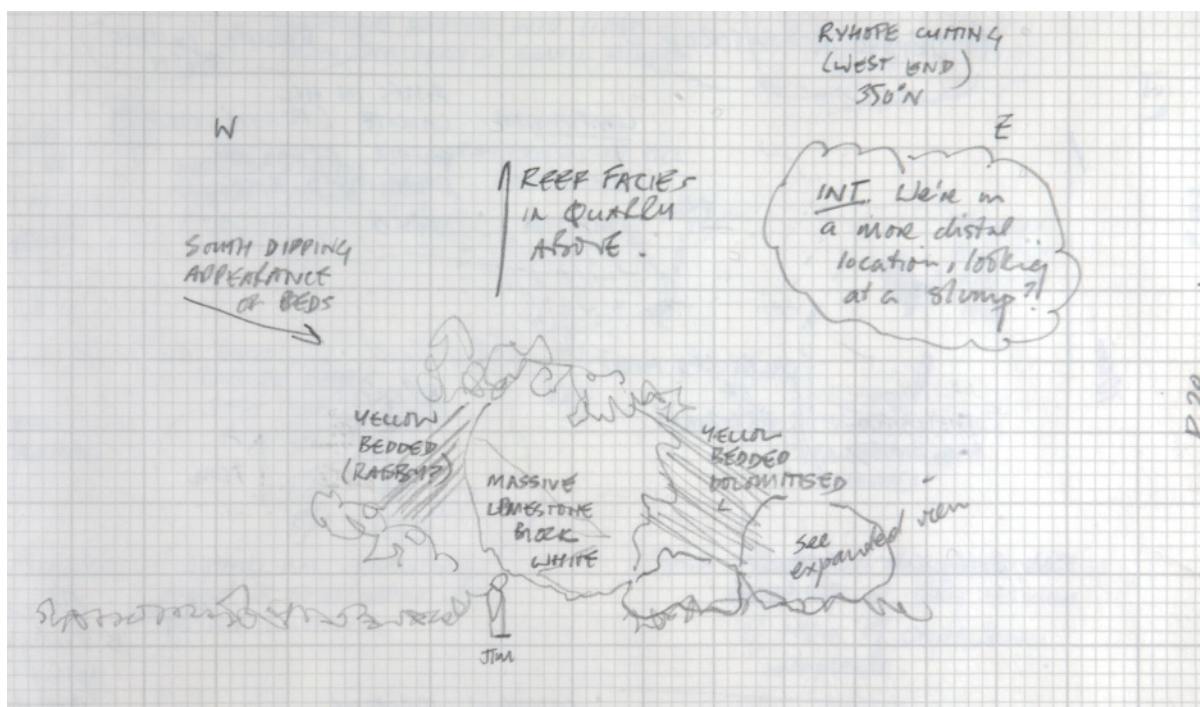 RYHOPE CUTTING
(WEST END)
350°N
W
E
REEF FACIES
IN QUARRY
ABOVE.
INT. We're in
a more distal
location, looking
at a slump?!
SOUTH DIPPING
APPEARANCE
OF BEDS
YELLOW
BEDDED
(RAGBY?)
MASSIVE
LIMESTONE
BLOCK
WHITE
YELLOW
BEDDED
DOLOMITISED
L
see
expanded view
JIM